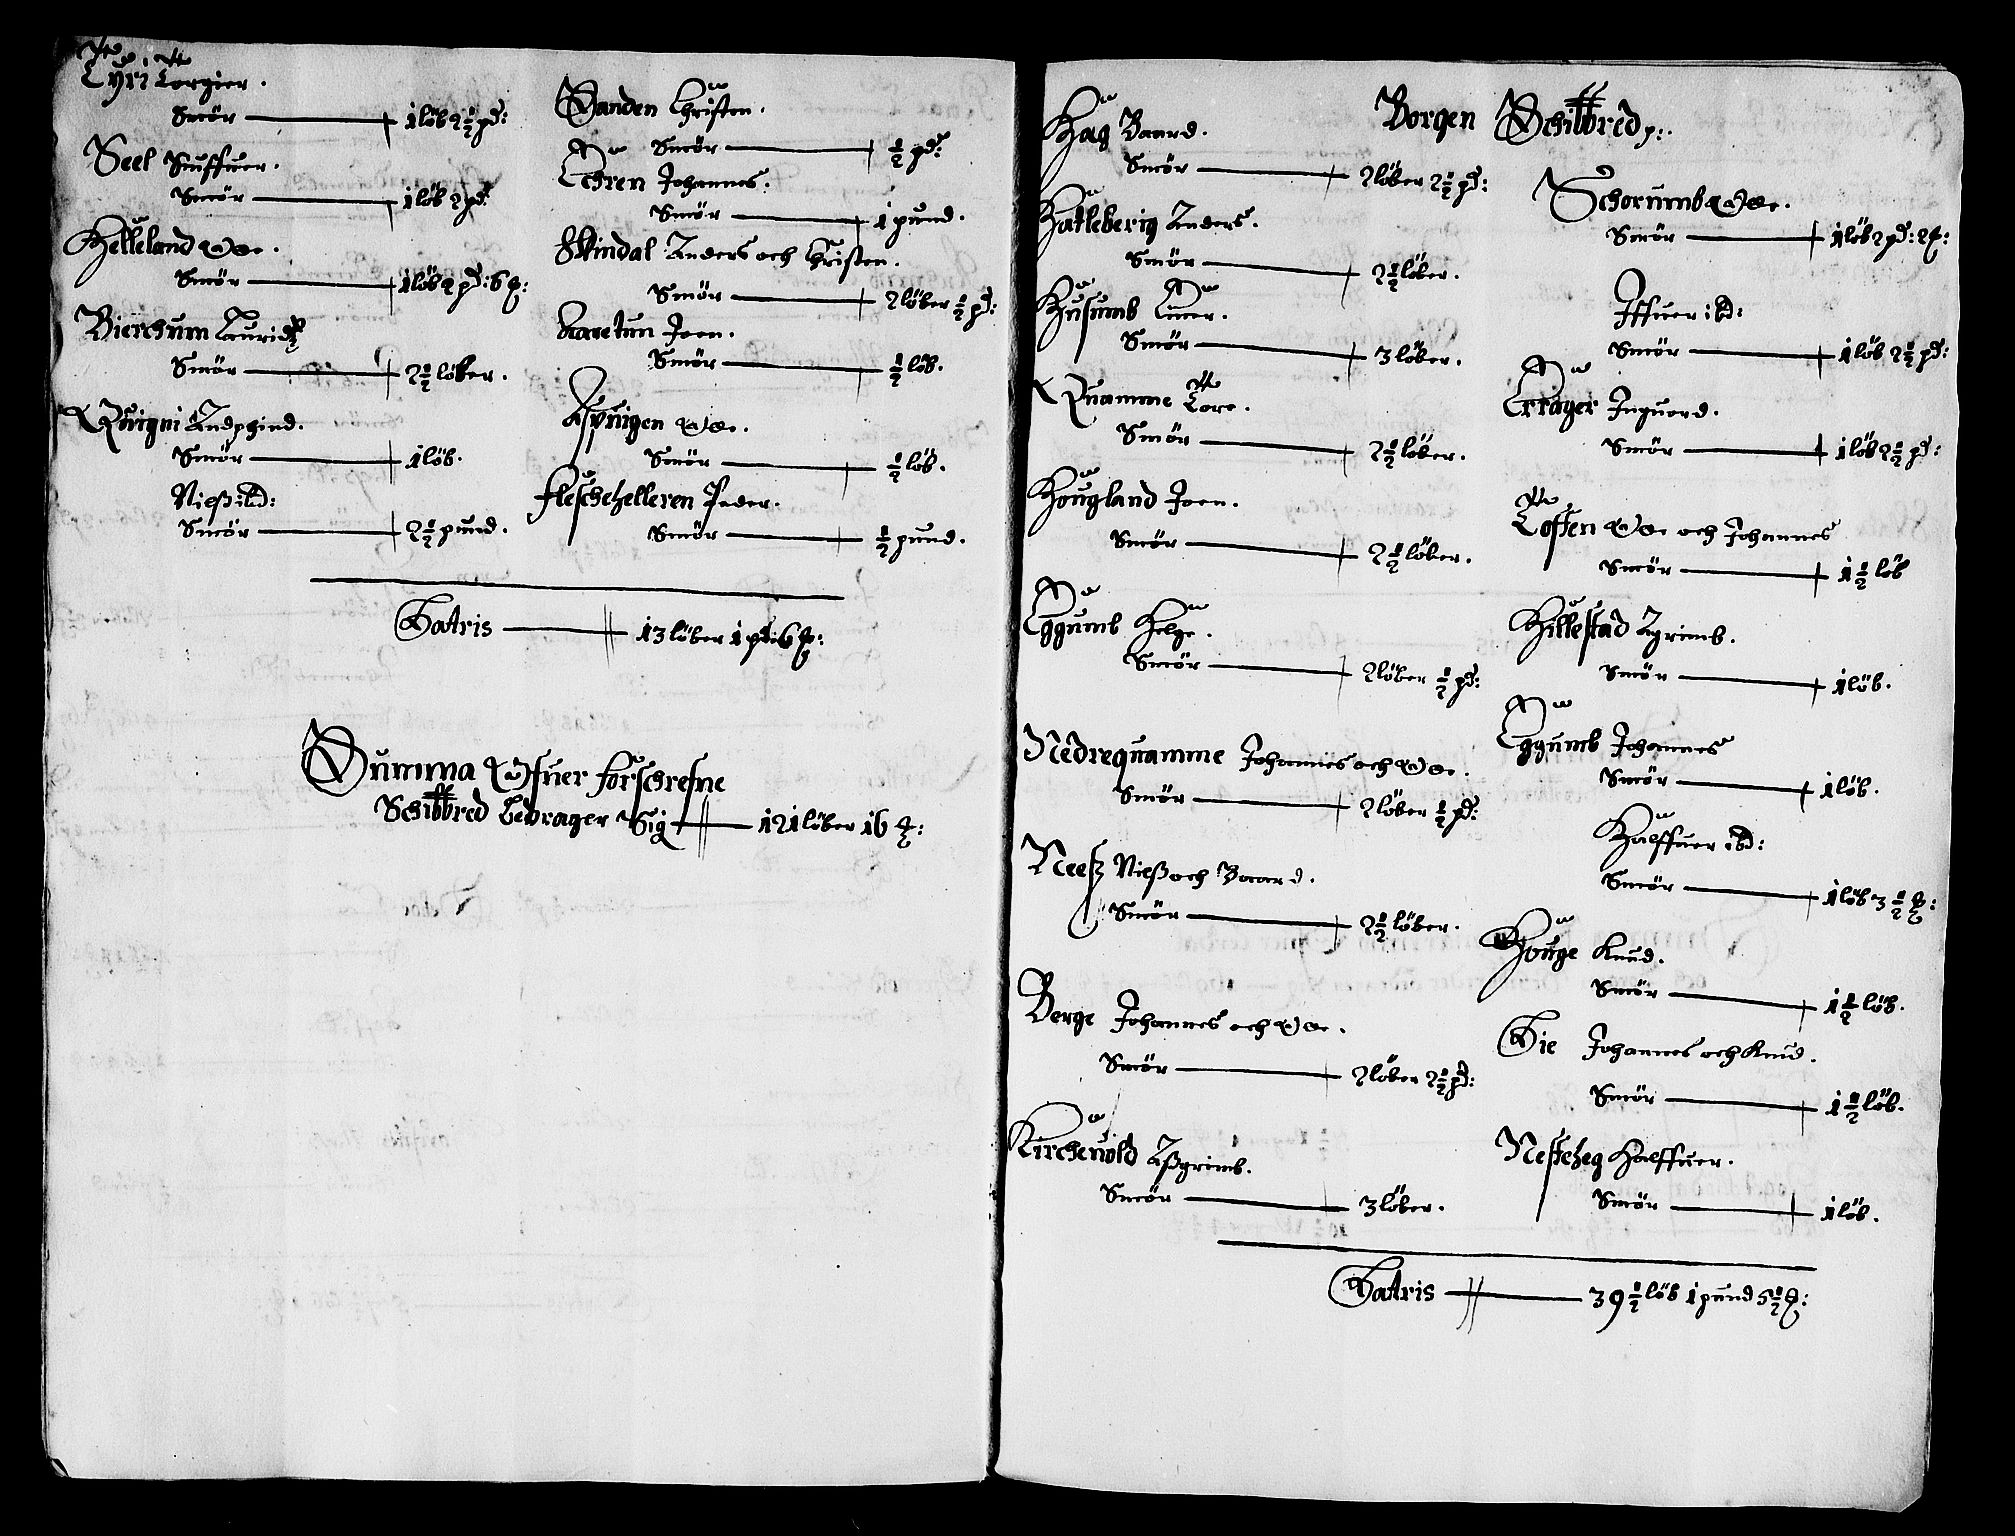 Tÿri Torgier.
Smör — 1 löb 2½ pd:
Seel Siuffuer.
Smör — 1 löb 2 pd:
Helleland Ole.
Smör — 1 löb 2 pd: 6 ℔:
Bierchum Lauridz
Smör — 2½ löber.
Quigni Andphind.
Smör — 1 löb.
Nielß ibd:
Smör — 2½ pund.
Sanden Christen.
Smör — ½ pd:
Echren Johannes.
Smör — 1 pund.
Skindal Anders och Christen.
Smör — 2 löber ½ pd:
Aaretun Joen.
Smör — ½ löb.
Aspuigen Ole.
Smör — ½ löb.
Fleschehelleren Peder.
Smör — ½ pund.
Latris — 13 löber 1 pd: 6 ℔:
Summa Ofuer forschrefne
Schibbred bedrager Sig — 121 löber 16 ℔:
Borgen Schibbred p:.
Hag Baard.
Smör — 2 löber 2½ pd:
Hatleberig Anders.
Smör — 2½ löber.
Husumb Einer.
Smör — 3 löber.
Quamme Tore.
Smör — 2½ löber.
Hougland Joen.
Smör — 2½ löber.
Eggumb Helge.
Smör — 2 löber ½ pd:
Nedrequamme Johannes och Ole.
Smör — 2 löber ½ pd:
Neesz Nielß och Baard.
Smör — 2½ löber.
Berge Johannes och Ole.
Smör — 2 löber 2½ pd:
Kircheuold Aßgrimb.
Smör — 3 löber.
Schorumb Ole.
Smör — 1 löb 2 pd: 2 ℔:
Iffuer ibd:
Smör — 1 löb 2½ pd:
Erager Inguord.
Smör — 1 löb 2½ pd:
Toften Ole och Johannes
Smör — 1½ löb
Hillestad Agrimb.
Smör — 1 löb.
Eggumb Johannes
Smör — 1 löb.
Halffuer ibd:
Smör — 1 löb 3½ ℔:
Houge Knud.
Smör — 1½ löb.
Lie Johannes och Knud.
Smör — 1½ löb.
Nesteheg Halffuer.
Smör — 1 löb.
Latris — 39½ löb 1 pund 5½ ℔: